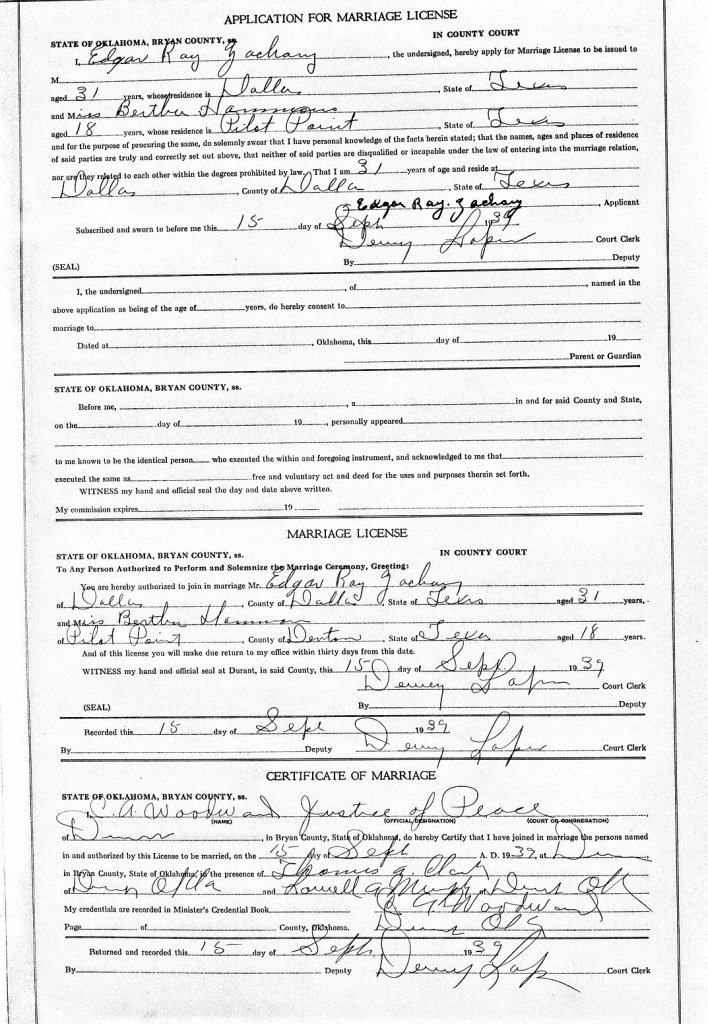 APPLICATION FOR MARRIAGE LICENSE
STATE OF OKLAHOMA, BRYAN COUNTY, ss. IN COUNTY COURT
I, Edgar Ray Zachary, the undersigned, hereby apply for Marriage License to be issued to
M
aged 31 years, whose residence is Dallas, State of Texas
and Miss Bertha Hammons
aged 18 years, whose residence is Pilot Point, State of Texas
and for the purpose of procuring the same, do solemnly swear that I have personal knowledge of the facts herein stated; that the names, ages and places of residence
of said parties are truly and correctly set out above, that neither of said parties are disqualified or incapable under the law of entering into the marriage relation,
nor are they related to each other within the degrees prohibited by law. That I am 31 years of age and reside at
Dallas, County of Dallas, State of Texas
Edgar Ray Zachary, Applicant
Subscribed and sworn to before me this 15 day of Sept 1939
Dewey Court Clerk
(SEAL) By Deputy
I, the undersigned, of, named in the
above application as being of the age of years, do hereby consent to
marriage to
Dated at, Oklahoma, this day of 19
Parent or Guardian
STATE OF OKLAHOMA, BRYAN COUNTY, ss.
Before me,, a in and for said County and State,
on the day of 19, personally appeared
to me known to be the identical person who executed the within and foregoing instrument, and acknowledged to me that
executed the same as free and voluntary act and deed for the uses and purposes therein set forth.
WITNESS my hand and official seal the day and date above written.
My commission expires 19
MARRIAGE LICENSE
STATE OF OKLAHOMA, BRYAN COUNTY, ss. IN COUNTY COURT
To Any Person Authorized to Perform and Solemnize the Marriage Ceremony, Greeting:
You are hereby authorized to join in marriage Mr. Edgar Ray Zachary
of Dallas, County of Dallas, State of Texas aged 31 years,
and Miss Bertha Hammon
of Pilot Point, County of Denton, State of Texas aged 18 years.
And of this license you will make due return to my office within thirty days from this date.
WITNESS my hand and official seal at Durant, in said County, this 15 day of Sept 1939
Dewey Court Clerk
(SEAL) By Deputy
Recorded this 15 day of Sept 1939
By Deputy Dewey Court Clerk
CERTIFICATE OF MARRIAGE
STATE OF OKLAHOMA, BRYAN COUNTY, ss.
I, C. A. Woodward Justice of Peace
(NAME) (OFFICIAL DESIGNATION) (COURT OR CONGREGATION)
of, in Bryan County, State of Oklahoma, do hereby Certify that I have joined in marriage the persons named
in and authorized by this License to be married, on the 15 day of Sept A. D. 1939, at
in Bryan County, State of Oklahoma, in the presence of Thomas G. Clark
of Okla and Lowell G. of
My credentials are recorded in Minister's Credential Book. C A Woodward
Page of County, Oklahoma.
Returned and recorded this 15 day of Sept 1939
By Deputy Dewey Court Clerk